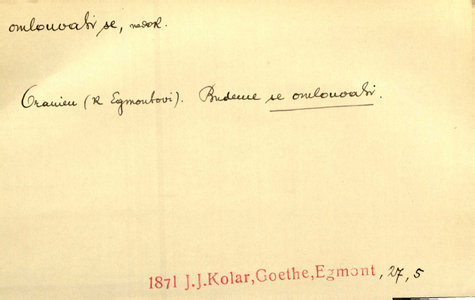 omlouvati se, nedok.
Oranien (k Egmontovi). Budeme se omlouvati.
1871 J.J.Kolar,Goethe,Egmont, 27, 5